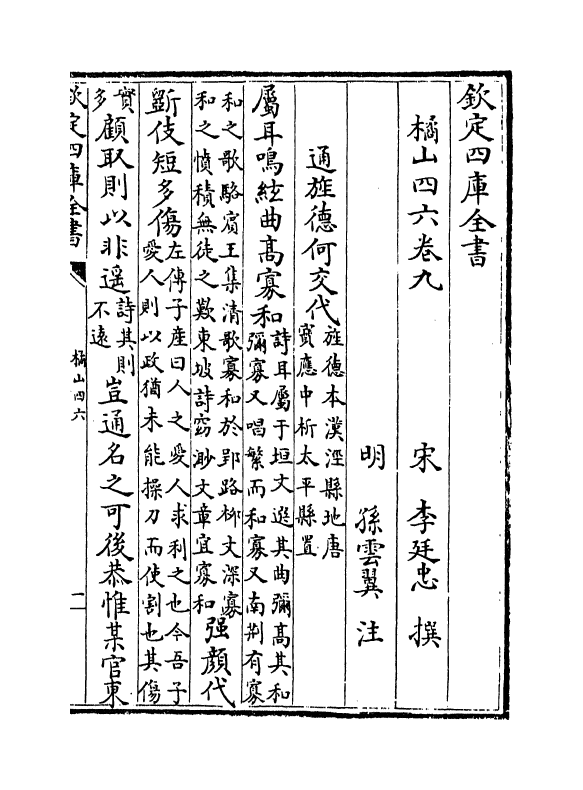 欽定四庫全書
橘山四六卷九 宋 李廷忠 撰
明 孫雲翼 注
通旌德何交代旌德本漢涇縣地唐寶應中析太平縣置
屬耳鳴絃曲高寡和詩耳屬于垣文選其曲彌高其和彌寡又唱繁而和寡又南荆有寡
和之歌駱賓王集清歌寡和於郢路柳文深寡和之憤積無徒之歎東坡詩窈渺文章宜寡和强顔代
斵伎短多傷左傳子産曰人之愛人求利之也今吾子愛人則以政猶未能操刀而使割也其傷
實多顧取則以非遥詩其則不遠豈通名之可後恭惟某官東
欽定四庫全書
橘山四六